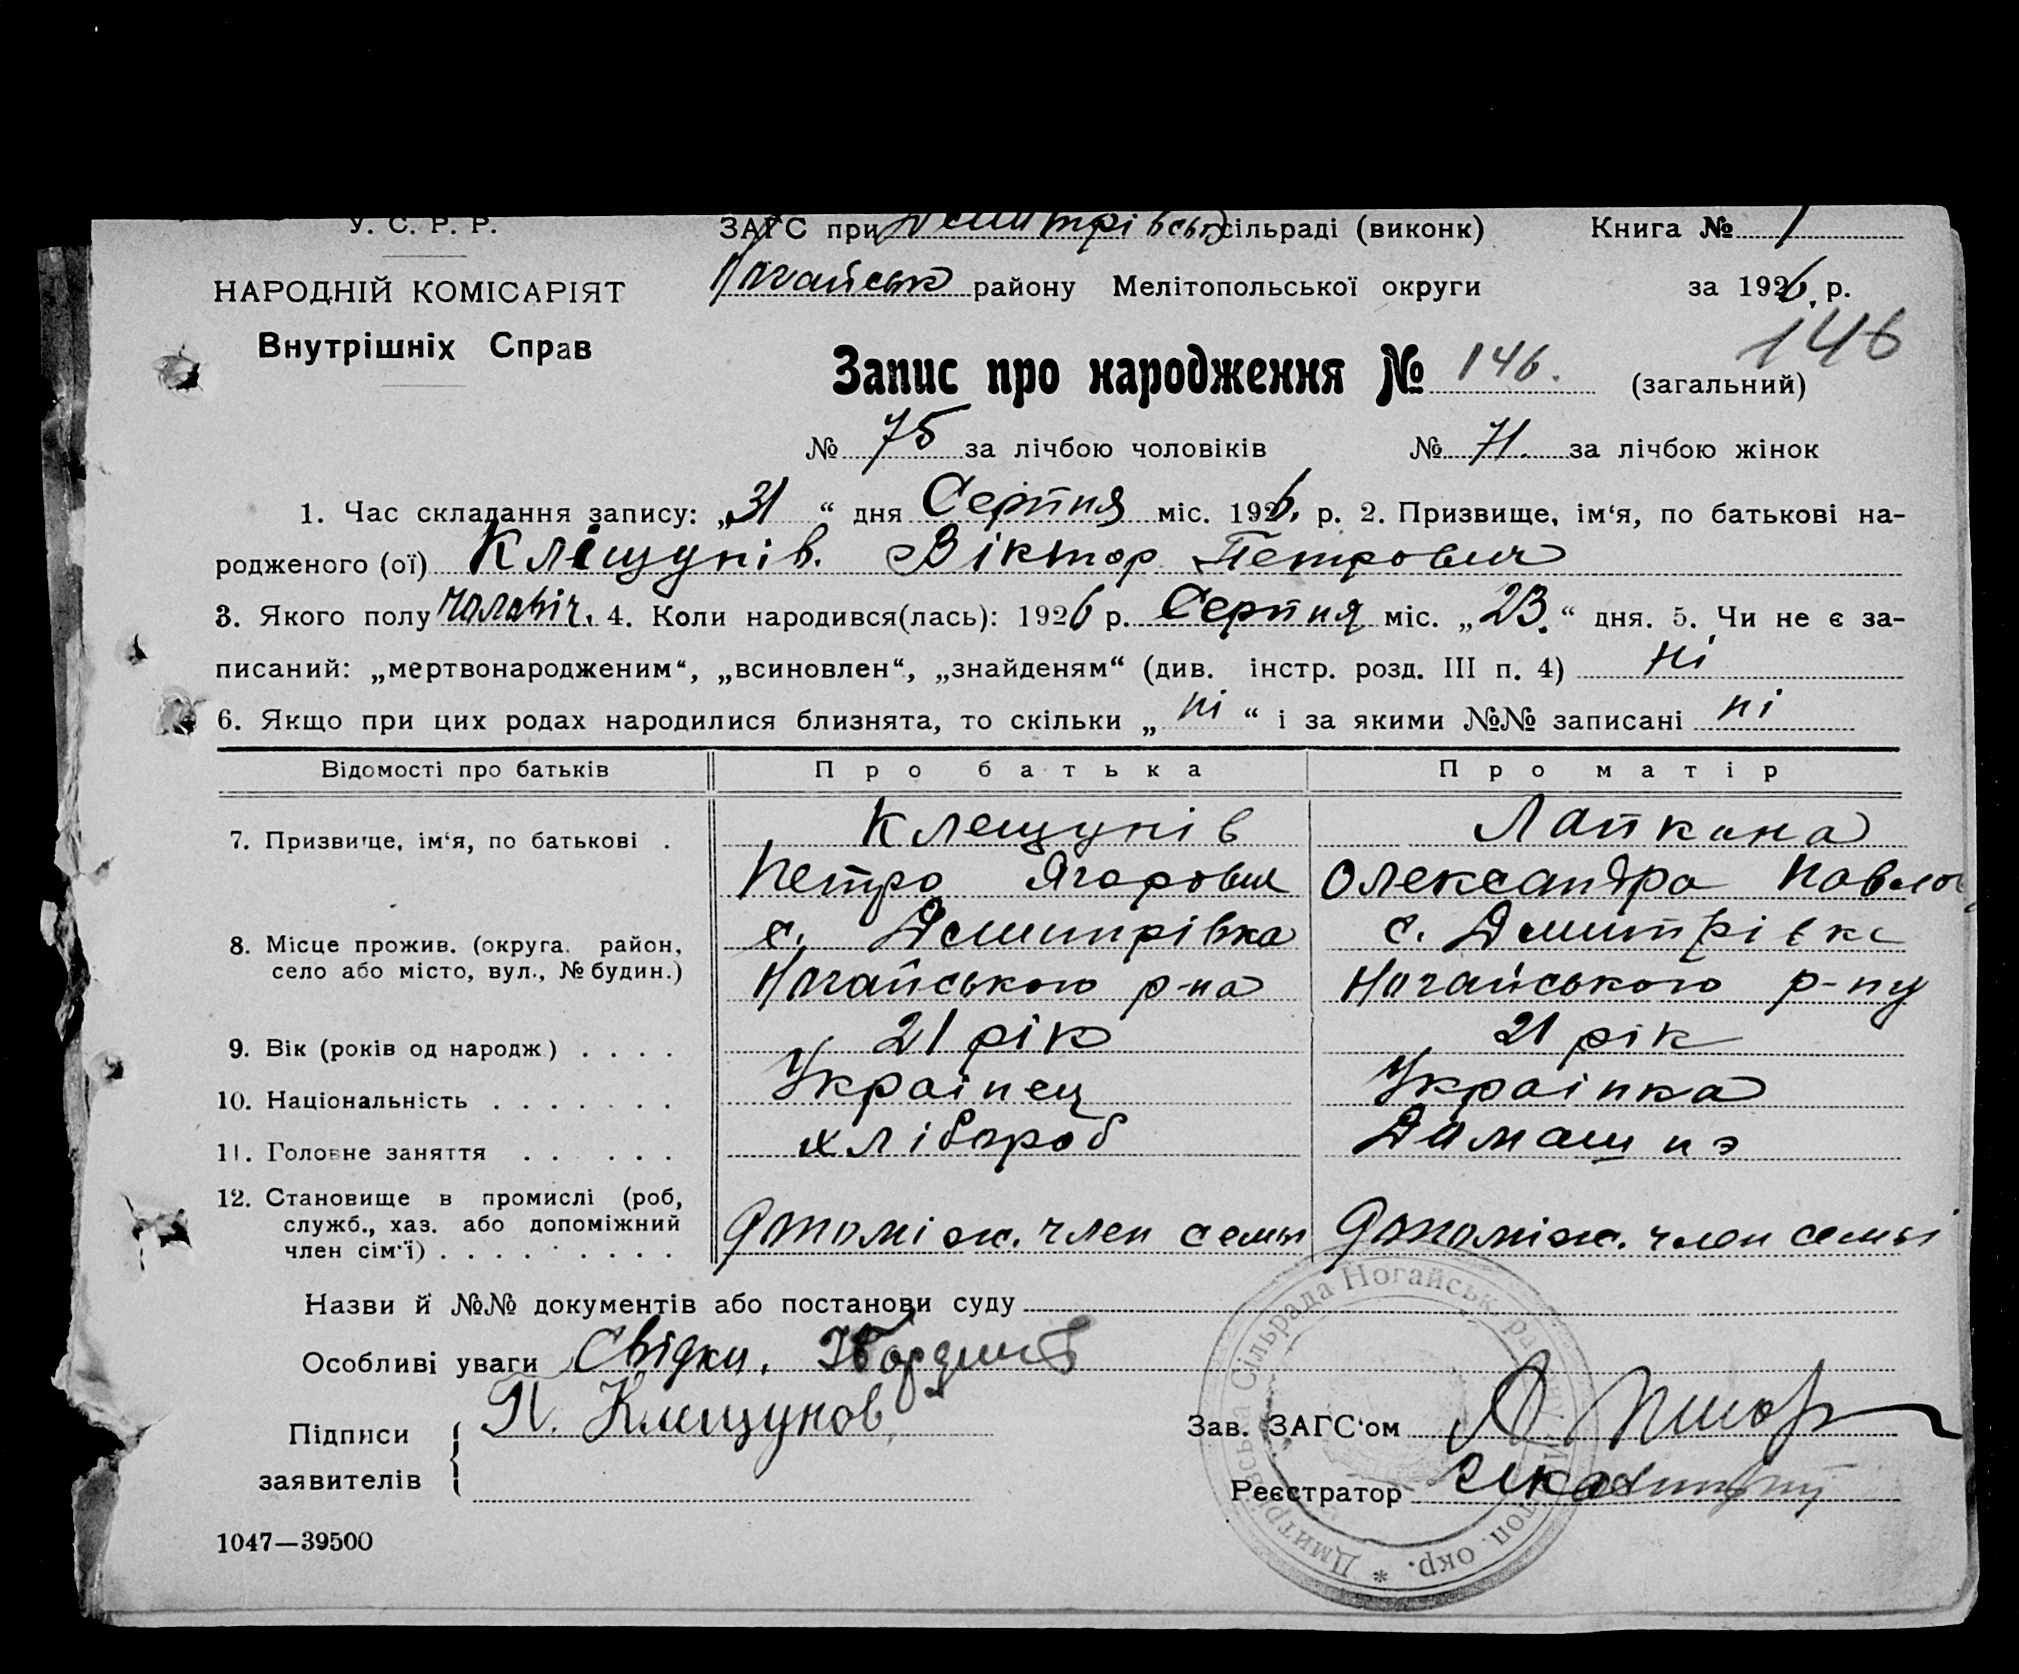 У. С. Р. Р.
НАРОДНІЙ КОМІСАРІЯТ
Внутрішніх Справ
ЗАГС при Демитрівські сільраді (виконк) Книга № 1
Ногайськ району Мелітопольської округи за 1926 р.
146
Запис про народження № 146. (загальний)
№ 75 за лічбою чоловіків № 71. за лічбою жінок
1. Час складання запису: „31“ дня Серпня міс. 1926. р. 2. Призвище, ім‘я, по батькові на-
родженого (ої) Кліщунів. Віктор Петрович
3. Якого полу Чоловіч. 4. Коли народився(лась): 1926 р. Серпня міс. „23.“ дня. 5. Чи не є за-
писаний: „мертвонародженим“, „всиновлен“, „знайденям“ (див. інстр. розд. III п. 4) ні
6. Якщо при цих родах народилися близнята, то скільки „ ні “ і за якими №№ записані ні
Відомості про батьків Про батька Про матір
7. Призвище, ім‘я, по батькові . Клещунів Лапкина
Петро Ягорович Олександра Павлов
8. Місце прожив. (округа. район, с. Демитрівка с. Дмитрівка
село або місто, вул., № будин.) Ногайського р-на Ногайського р-ну
9. Вік (років од народж.) . . . . 21 рік 21 рік
10. Національність . . . . . . . Украінец Украінка
11. Головне заняття . . . . . хлібороб Домашнэ
12. Становище в промислі (роб,
служб., хаз. або допоміжний
член сім‘ї) . . . . . . . . . Допоміж. член семьі Допоміж. член семьі
Назви й №№ документів або постанови суду
Особливі уваги Свідки.
Підписи
заявителів
П. Клещунов
Зав. ЗАГС‘ом
Реєстратор
Дмитрівська Сільрада Ногайськ. району Мелітоп. окр. *
1047—39500